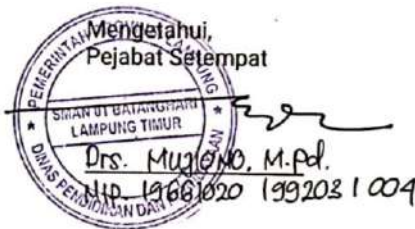 Mengetahui,
Pejabat Setempat
PEMERINTAH PROVINSI LAMPUNG
SMAN 01 BATANGHARI
LAMPUNG TIMUR
DINAS PENDIDIKAN DAN
Drs. MUJIONO, M.Pd.
NIP. 19661020 199203 1 004